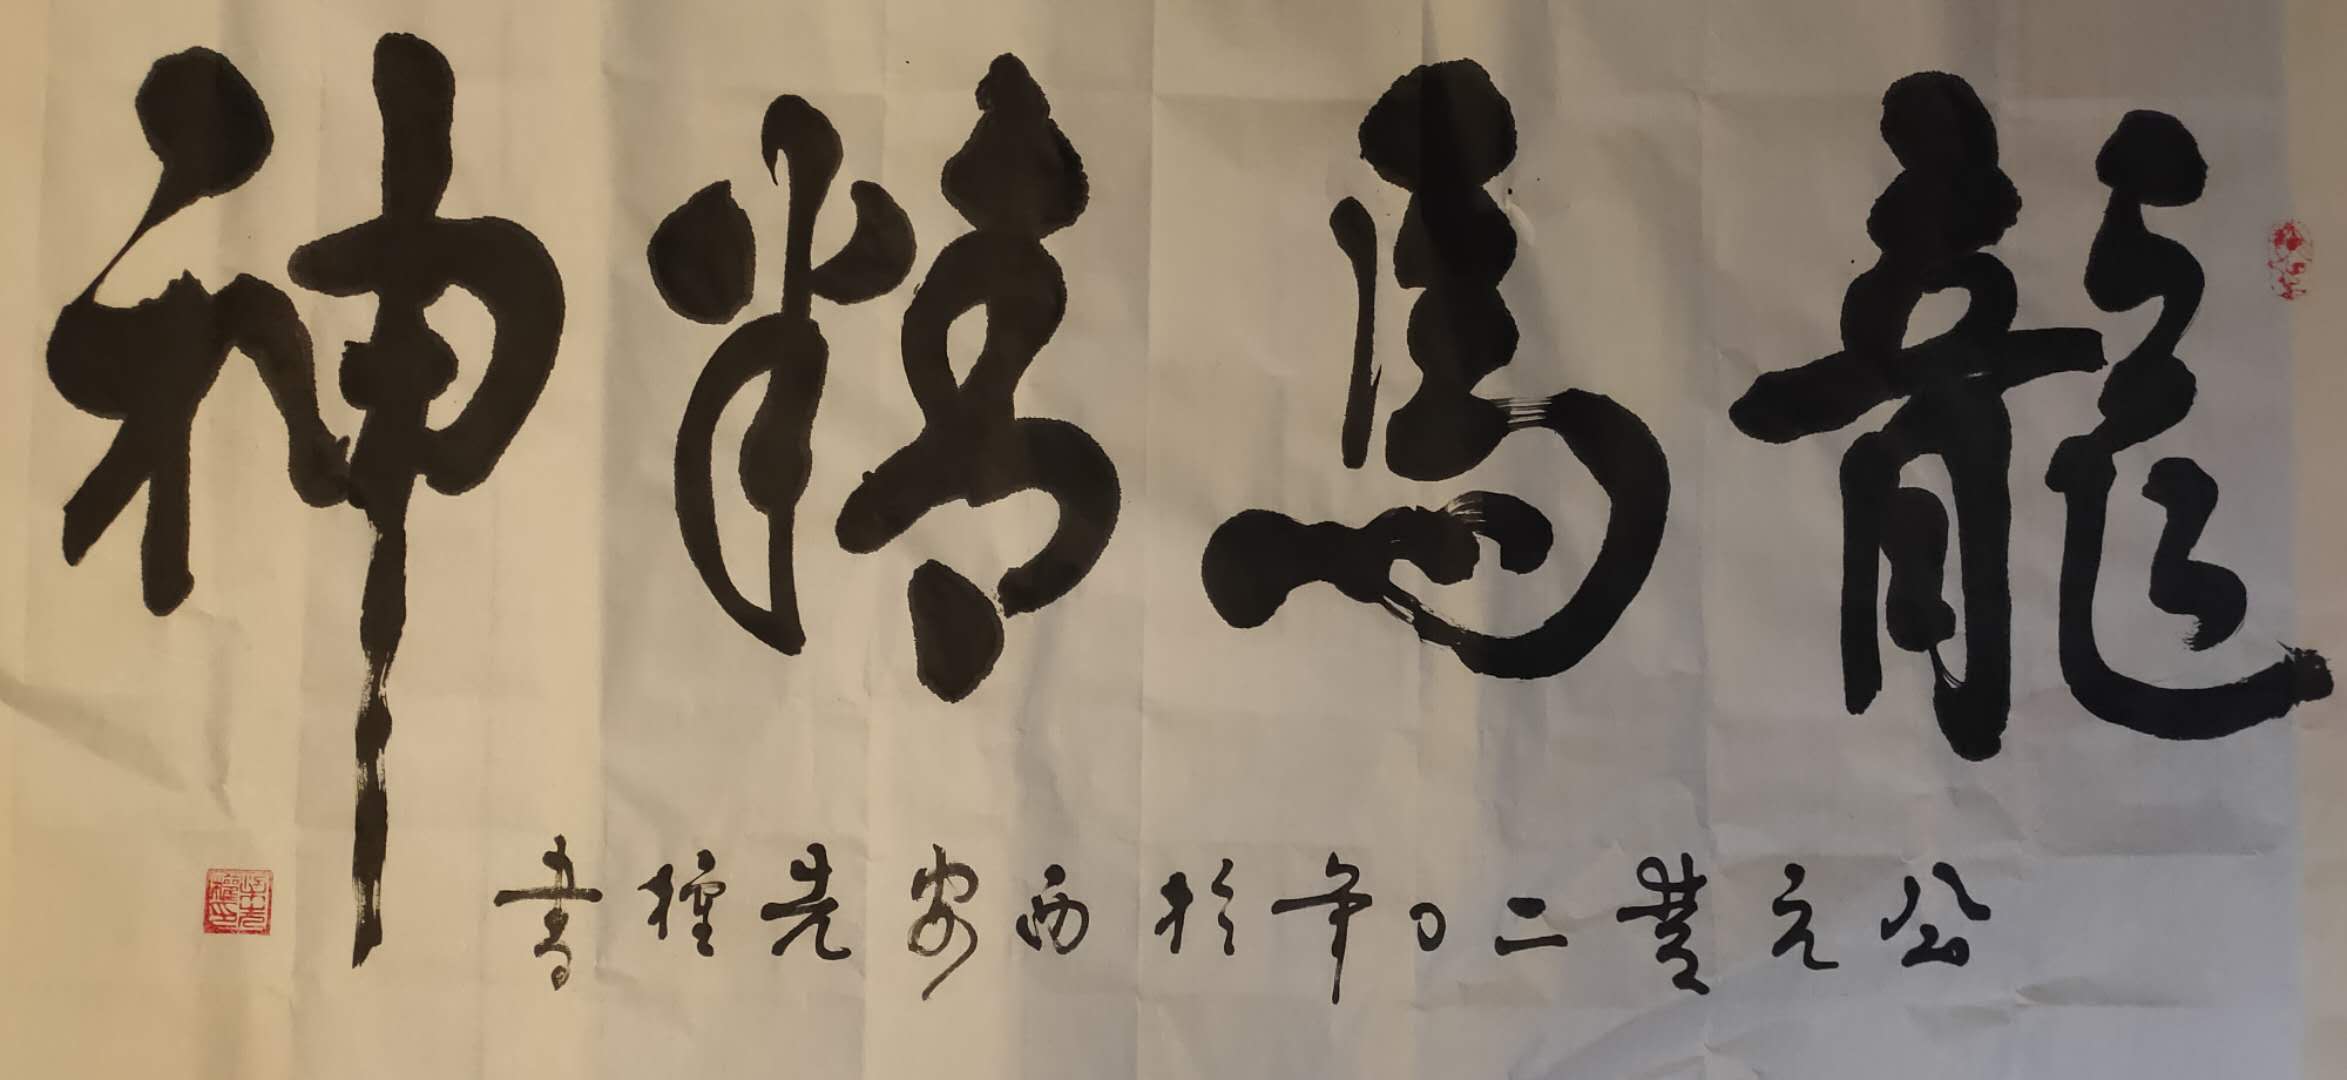 龍馬精神
公元二〇年於西安先書